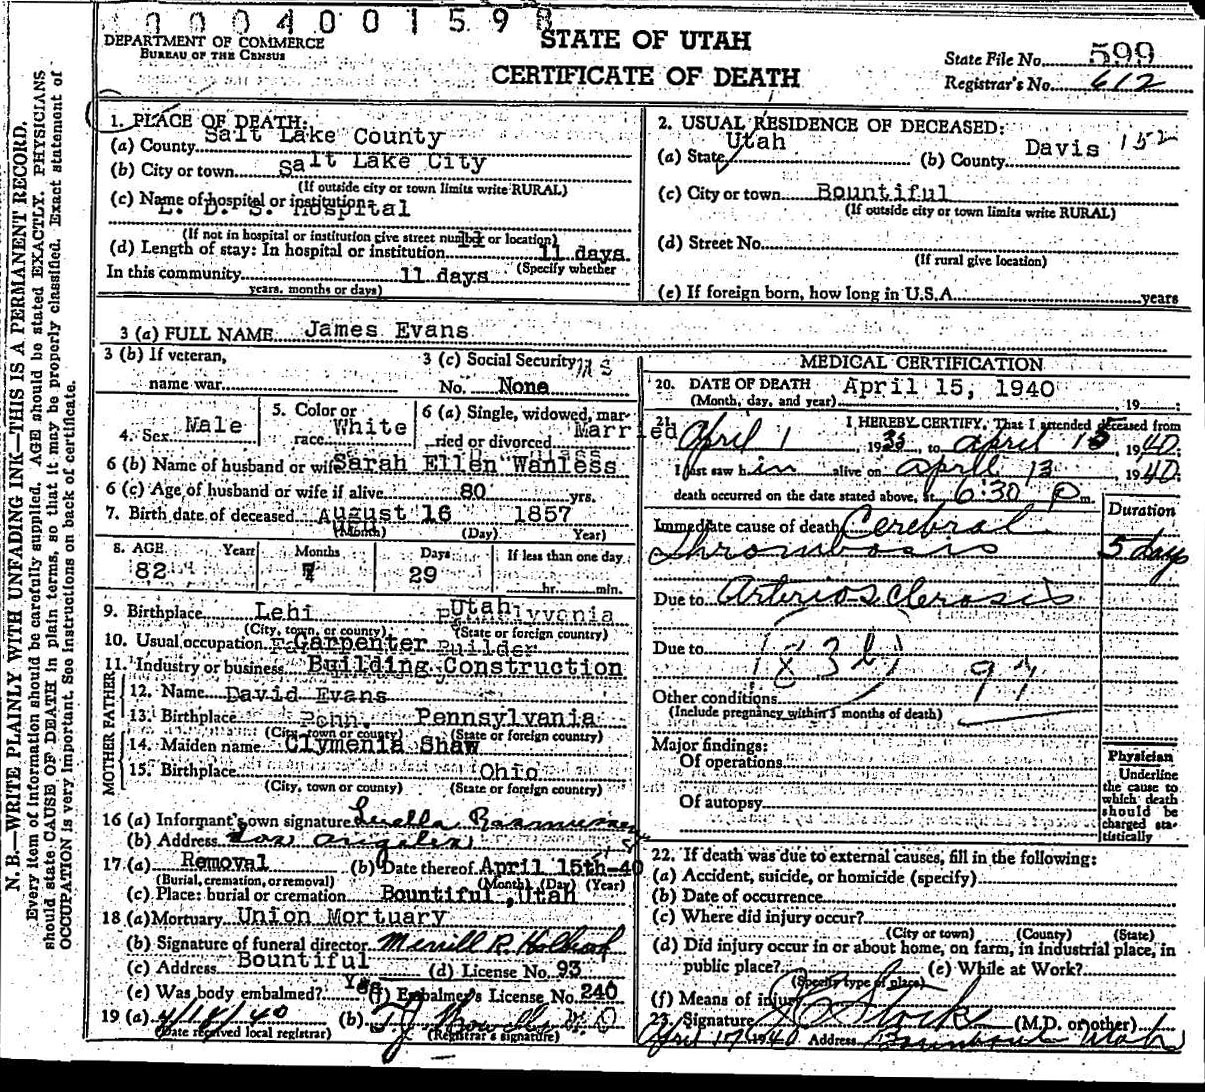 0004001598
DEPARTMENT OF COMMERCE
BUREAU OF THE CENSUS
STATE OF UTAH
CERTIFICATE OF DEATH
State File No. 599
Registrar's No. 612
N. B.—WRITE PLAINLY WITH UNFADING INK—THIS IS A PERMANENT RECORD.
Every item of information should be carefully supplied. AGE should be stated EXACTLY. PHYSICIANS
should state CAUSE OF DEATH in plain terms, so that it may be properly classified. Exact statement of
OCCUPATION is very important. See instructions on back of certificate.
1. PLACE OF DEATH:
(a) County Salt Lake County
(b) City or town Salt Lake City
(If outside city or town limits write RURAL)
(c) Name of hospital or institution:
L. D. S. Hospital
(If not in hospital or institution give street number or location)
(d) Length of stay: In hospital or institution 11 days
(Specify whether
In this community 11 days
years, months or days)
2. USUAL RESIDENCE OF DECEASED:
(a) State Utah (b) County Davis 152
(c) City or town Bountiful
(If outside city or town limits write RURAL)
(d) Street No.
(If rural give location)
(e) If foreign born, how long in U.S.A. years
3 (a) FULL NAME James Evans
3 (b) If veteran,
name war
3 (c) Social Security
No. None
4. Sex Male
5. Color or
race White
6 (a) Single, widowed, mar-
ried or divorced Married
6 (b) Name of husband or wife Sarah Ellen Wanless
6 (c) Age of husband or wife if alive 80 yrs.
7. Birth date of deceased August 16 1857
(Month) (Day) Year)
8. AGE Years Months Days If less than one day
82 7 29 hr. min.
9. Birthplace Lehi Utah
(City, town, or county) (State or foreign country)
10. Usual occupation Carpenter Builder
11. Industry or business Building Construction
FATHER
12. Name David Evans
13. Birthplace Penn. Pennsylvania
(City, town or county) (State or foreign country)
MOTHER
14. Maiden name Clymenia Shaw
15. Birthplace Ohio
(City, town or county) (State or foreign country)
16 (a) Informant's own signature Luella Rasmussen
(b) Address Los Angeles
17 (a) Removal (b) Date thereof April 15th-40
(Burial, cremation, or removal) (Month) (Day) (Year)
(c) Place: burial or cremation Bountiful, Utah
18 (a) Mortuary Union Mortuary
(b) Signature of funeral director Merrill R.
(c) Address Bountiful (d) License No. 93
(e) Was body embalmed? Yes (f) Embalmer's License No. 240
19 (a) 4/18/40 (b)
(Date received local registrar) (Registrar's signature)
MEDICAL CERTIFICATION
20. DATE OF DEATH April 15, 1940
(Month, day, and year) 19
21. I HEREBY CERTIFY, That I attended deceased from
April 1, 1935, to April 15, 1940;
I last saw him alive on April 13 1940;
death occurred on the date stated above, at 6:30 P m.
Duration
Immediate cause of death Cerebral
Thrombosis 5 days
Due to Arteriosclerosis
Due to (83b) 97
Other conditions
(Include pregnancy within 3 months of death)
Major findings:
Of operations
Of autopsy
Physician
Underline
the cause to
which death
should be
charged sta-
tistically
22. If death was due to external causes, fill in the following:
(a) Accident, suicide, or homicide (specify)
(b) Date of occurrence
(c) Where did injury occur?
(City or town) (County) (State)
(d) Did injury occur in or about home, on farm, in industrial place, in
public place? (e) While at Work?
(Specify type of place)
(f) Means of injury
23. Signature Stocks (M.D. or other)
April 17 1940 Address Bountiful Utah